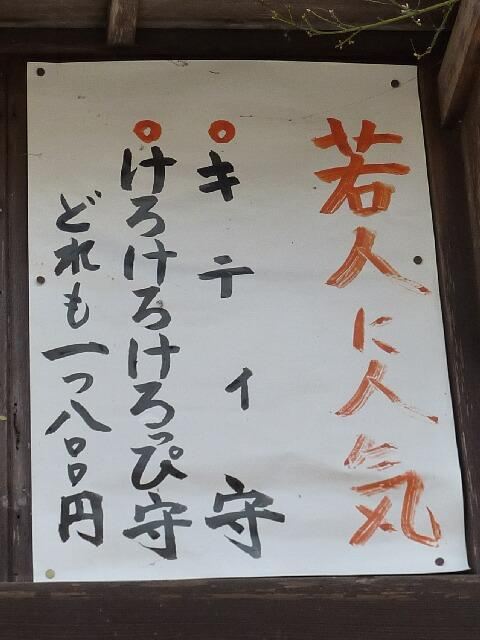 若人に人気
○キティ守
○けろけろけろっぴ守
どれも一つ八〇〇円